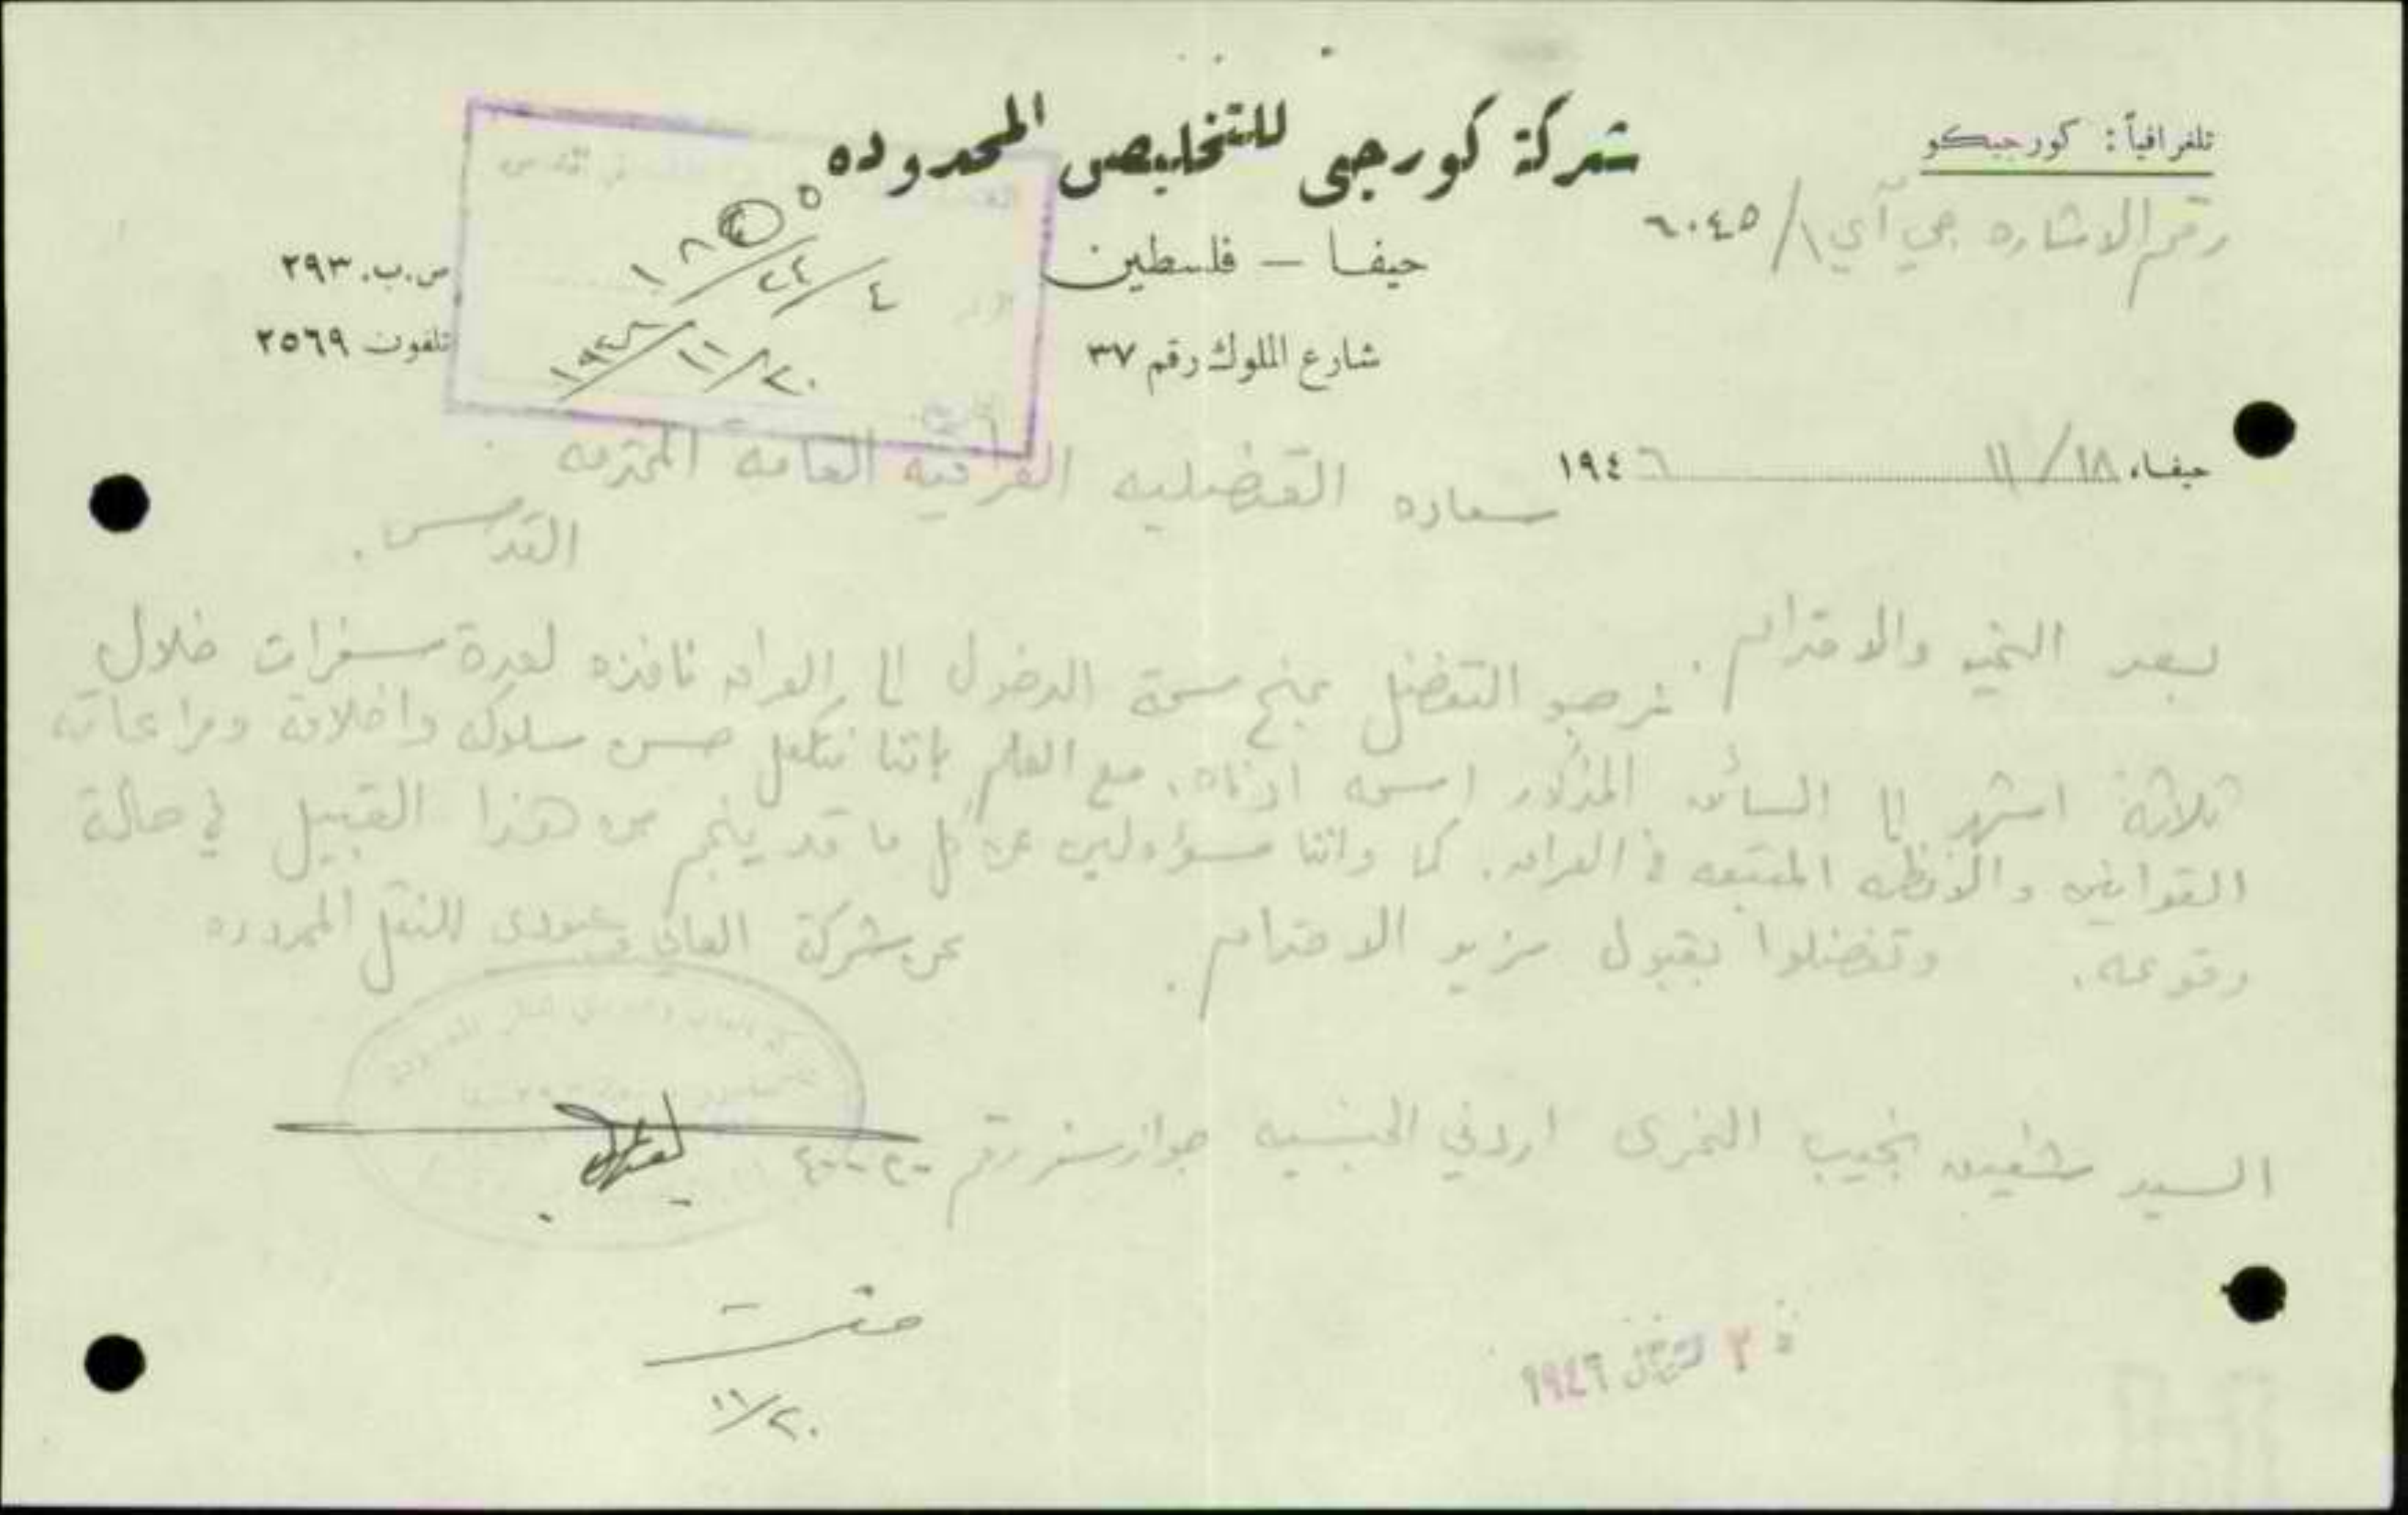 شركة كورجي للتخليص المحدوده
تلغرافياً: كورجيكو
رقم الاشاره جي آي ١/ ٦٠٤٥
حيفا — فلسطين
ص.ب. ٢٩٣
شارع الملوك رقم ٣٧
تلفون ٢٥٦٩
٤/٢٤/١٨٥٥
٢٠/١١/١٩٤٦
حيفا، ١٨/ ١١ ١٩٤٦
سعاده القنصليه العراقيه العامه المحترمه
القدس.
بعد التحيه والاحترام. نرجو التفضل بمنح سمة الدخول الى العراق نافذه لعدة سفرات خلال
ثلاثة اشهر الى السائق المذكور اسمه ادناه، مع العلم باننا نتكفل حسن سلوكه واخلاقه ومراعاته
القوانين والانظمه المتبعه في العراق. كما واننا مسؤولين عن كل ما قد ينجم من هذا القبيل في حالة
وقوعه. وتفضلوا بقبول مزيد الاحترام.
عن شركة العاني وعبودي للنقل المحدوده
السيد شفيق نجيب النمري اردني الجنسيه جواز سفر رقم
٢٠/١١
١٩٤٦